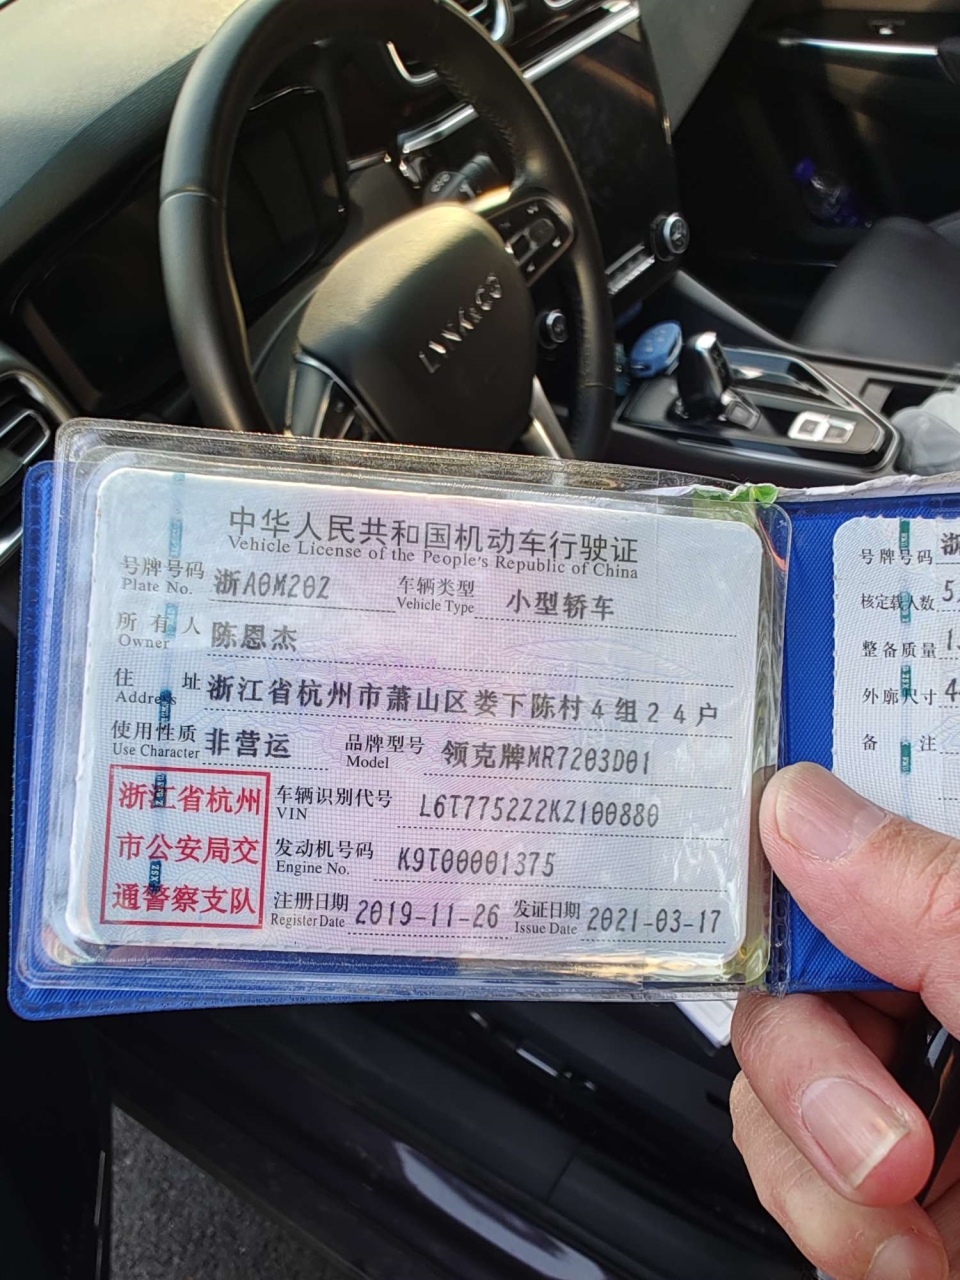 LYNK&CO
中华人民共和国机动车行驶证
Vehicle License of the People's Republic of China
号牌号码 Plate No. 浙A0M20Z 车辆类型 Vehicle Type 小型轿车
所有人 Owner 陈恩杰
住址 Address 浙江省杭州市萧山区娄下陈村4组24户
使用性质 Use Character 非营运 品牌型号 Model 领克牌MR7203D01
浙江省杭州
市公安局交
通警察支队
车辆识别代号 VIN L6T7752Z2KZ100880
发动机号码 Engine No. K9T00001375
注册日期 Register Date 2019-11-26 发证日期 Issue Date 2021-03-17
号牌号码 浙
核定载人数 5
整备质量 1
外廓尺寸 4
备注